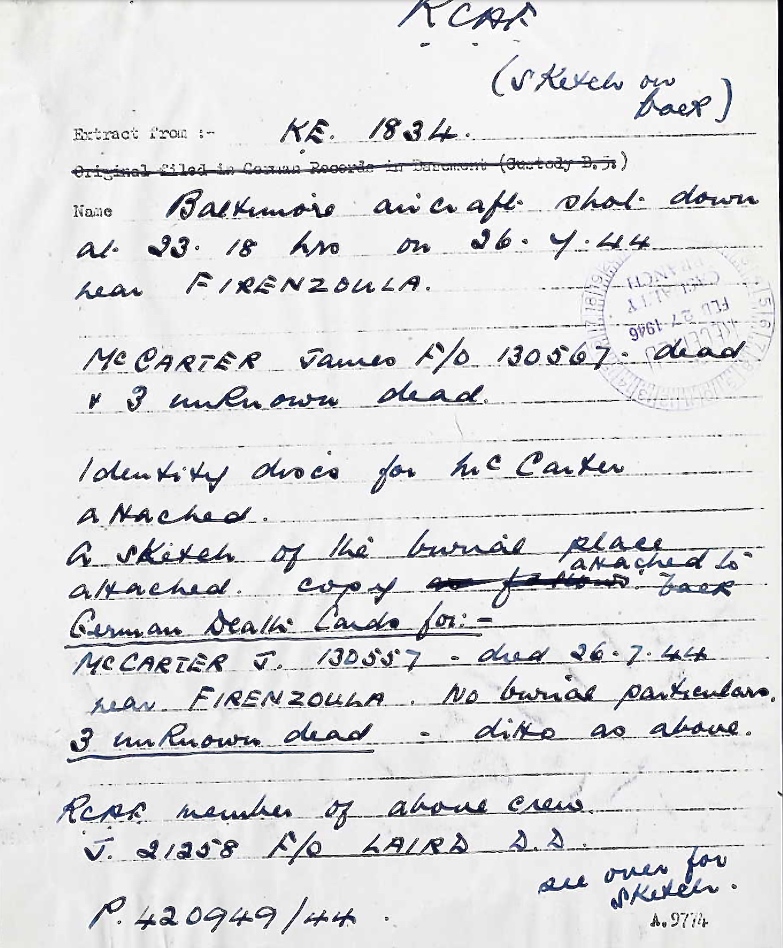 RCAF
(sketch on
back)
Extract from :- KE. 1834.
Original filed in German Records in Basement (Custody B.j.)
Name Baltimore aircraft shot down
at 23.18 hrs on 26.7.44
near FIRENZOULA.
RECEIVED
FEB 27 1946
CASUALTY
BRANCH
McCARTER James F/O 130567. dead
& 3 unknown dead.
Identity discs for McCarter
attached.
A sketch of the burial place
attached. copy as follows attached to back
German Death Cards for:-
McCARTER J. 130557 - died 26.7.44
near FIRENZOULA. No burial particulars.
3 unknown dead - ditto as above.
RCAF member of above crew
J. 21258 F/O LAIRD D.D.
see over for
sketch.
P.420949/44.
A.9774